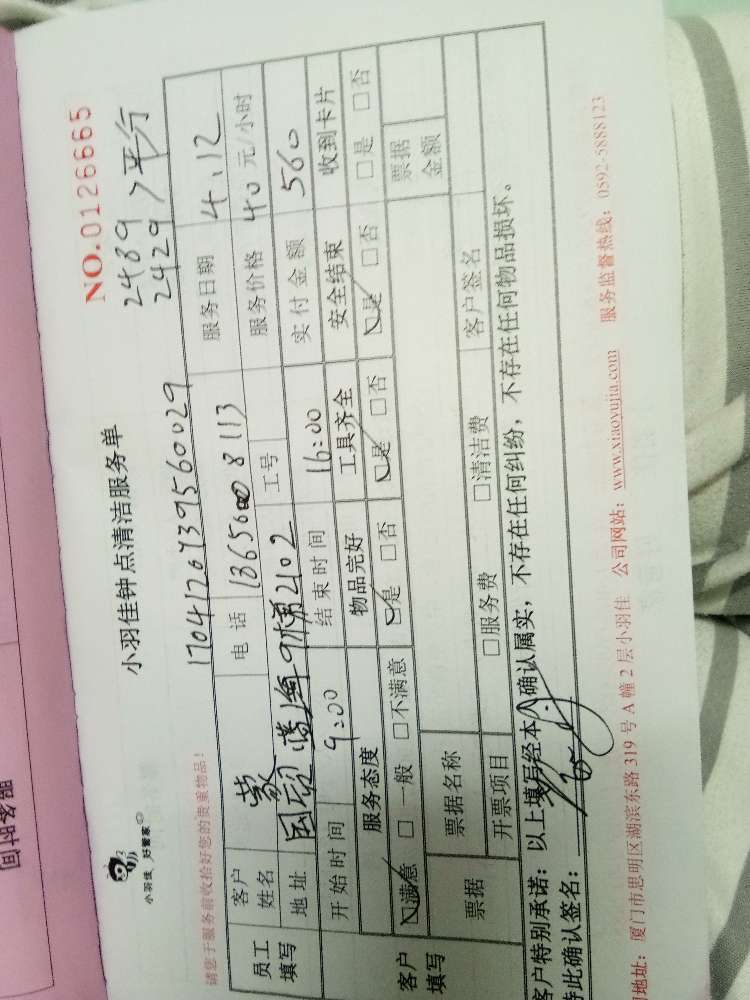 NO.0126665
小羽佳 好管家
小羽佳钟点清洁服务单
2489
2429 > 平行
请您于服务前收拾好您的贵重物品!
1704126739560029
员工填写 客户姓名 蒙 电话 工号 8113 服务日期 4.12
地址 2102 服务价格 40 元/小时
开始时间 9:00 结束时间 16:00 实付金额 560
客户填写 服务态度 物品完好 工具齐全 安全结束 收到卡片
☑满意 □一般 □不满意 ☑是 □否 ☑是 □否 ☑是 □否 □是 □否
票据 票据名称 票据金额
开票项目 □服务费 □清洁费 客户签名
客户特别承诺:以上填写经本人确认属实,不存在任何纠纷,不存在任何物品损坏。
特此确认签名:
地址:厦门市思明区湖滨东路 319 号 A 幢 2 层小羽佳 公司网站:www.xiaoyujia.com 服务监督热线:0592-5888123